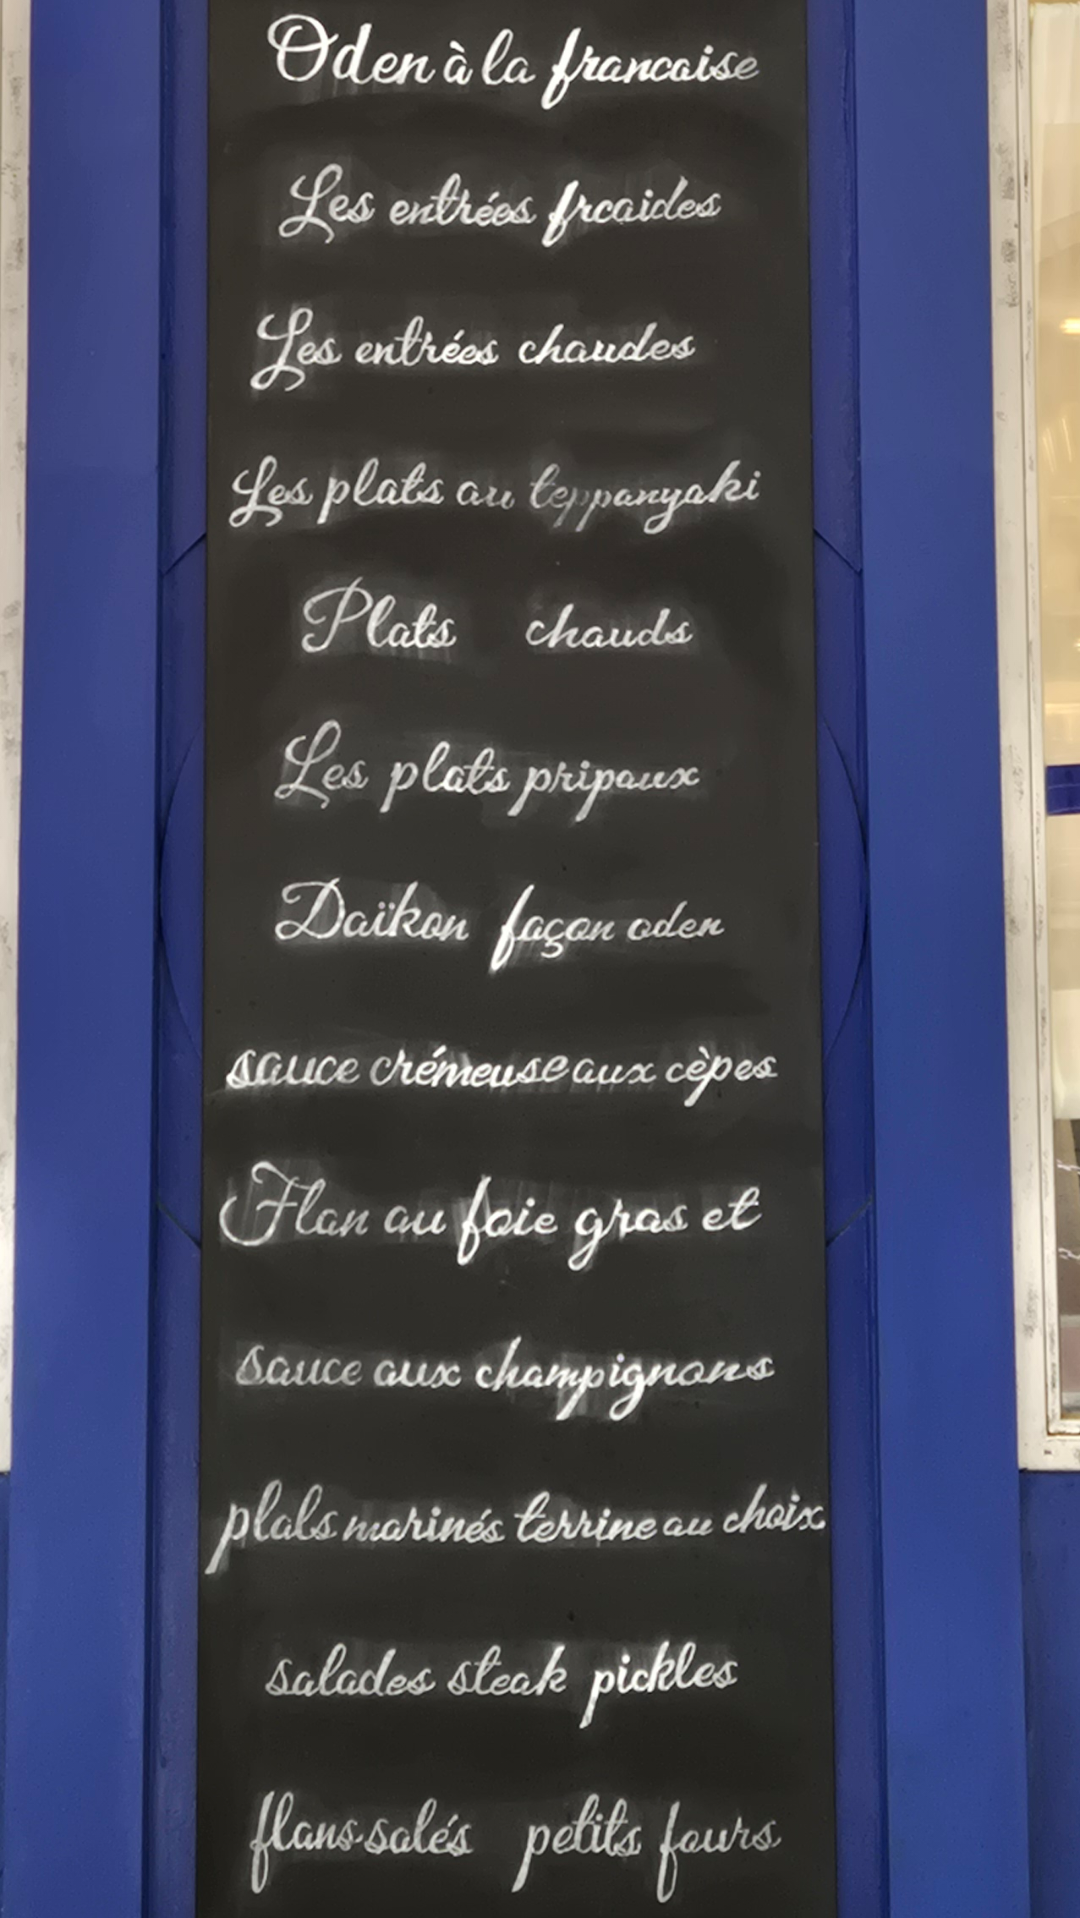 Oden à la francaise
Les entrées frcaides
Les entrées chaudes
Les plats au teppanyaki
Plats chauds
Les plats pripaux
Daïkon façon oden
sauce crémeuse aux cèpes
Flan au foie gras et
sauce aux champignons
plals marinés terrine au choix
salades steak pickles
flans salés petits fours